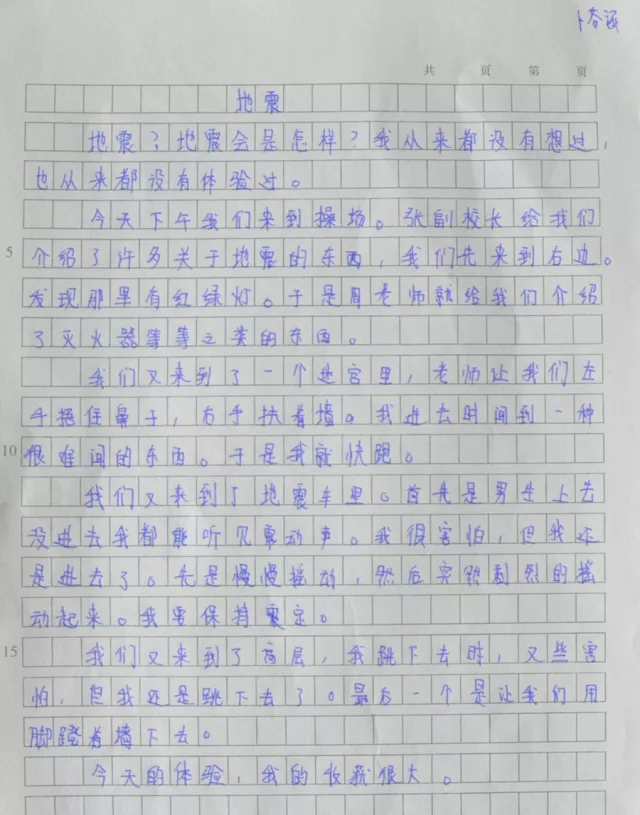 共 页 第 页
地震
地震？地震会是怎样？我从来都没有想过，
也从来都没有体验过。
今天下午我们来到操场。张副校长给我们
5 介绍了许多关于地震的东西，我们先来到右边。
发现那里有红绿灯。于是周老师就给我们介绍
了灭火器等等之类的东西。
我们又来到了一个迷宫里，老师让我们左
手捂住鼻子，右手扶着墙。我进去时闻到一种
10 很难闻的东西。于是我就快跑。
我们又来到了地震车里。首先是男生上去
没进去我都能听见震动声。我很害怕，但我还
是进去了。先是慢慢摇动，然后突然剧烈的摇
动起来。我要保持震定。
15 我们又来到了高层，我跳下去时，又些害
怕，但我还是跳下去了。最后一个是让我们用
脚蹬着墙下去。
今天的体验，我的收获很大。